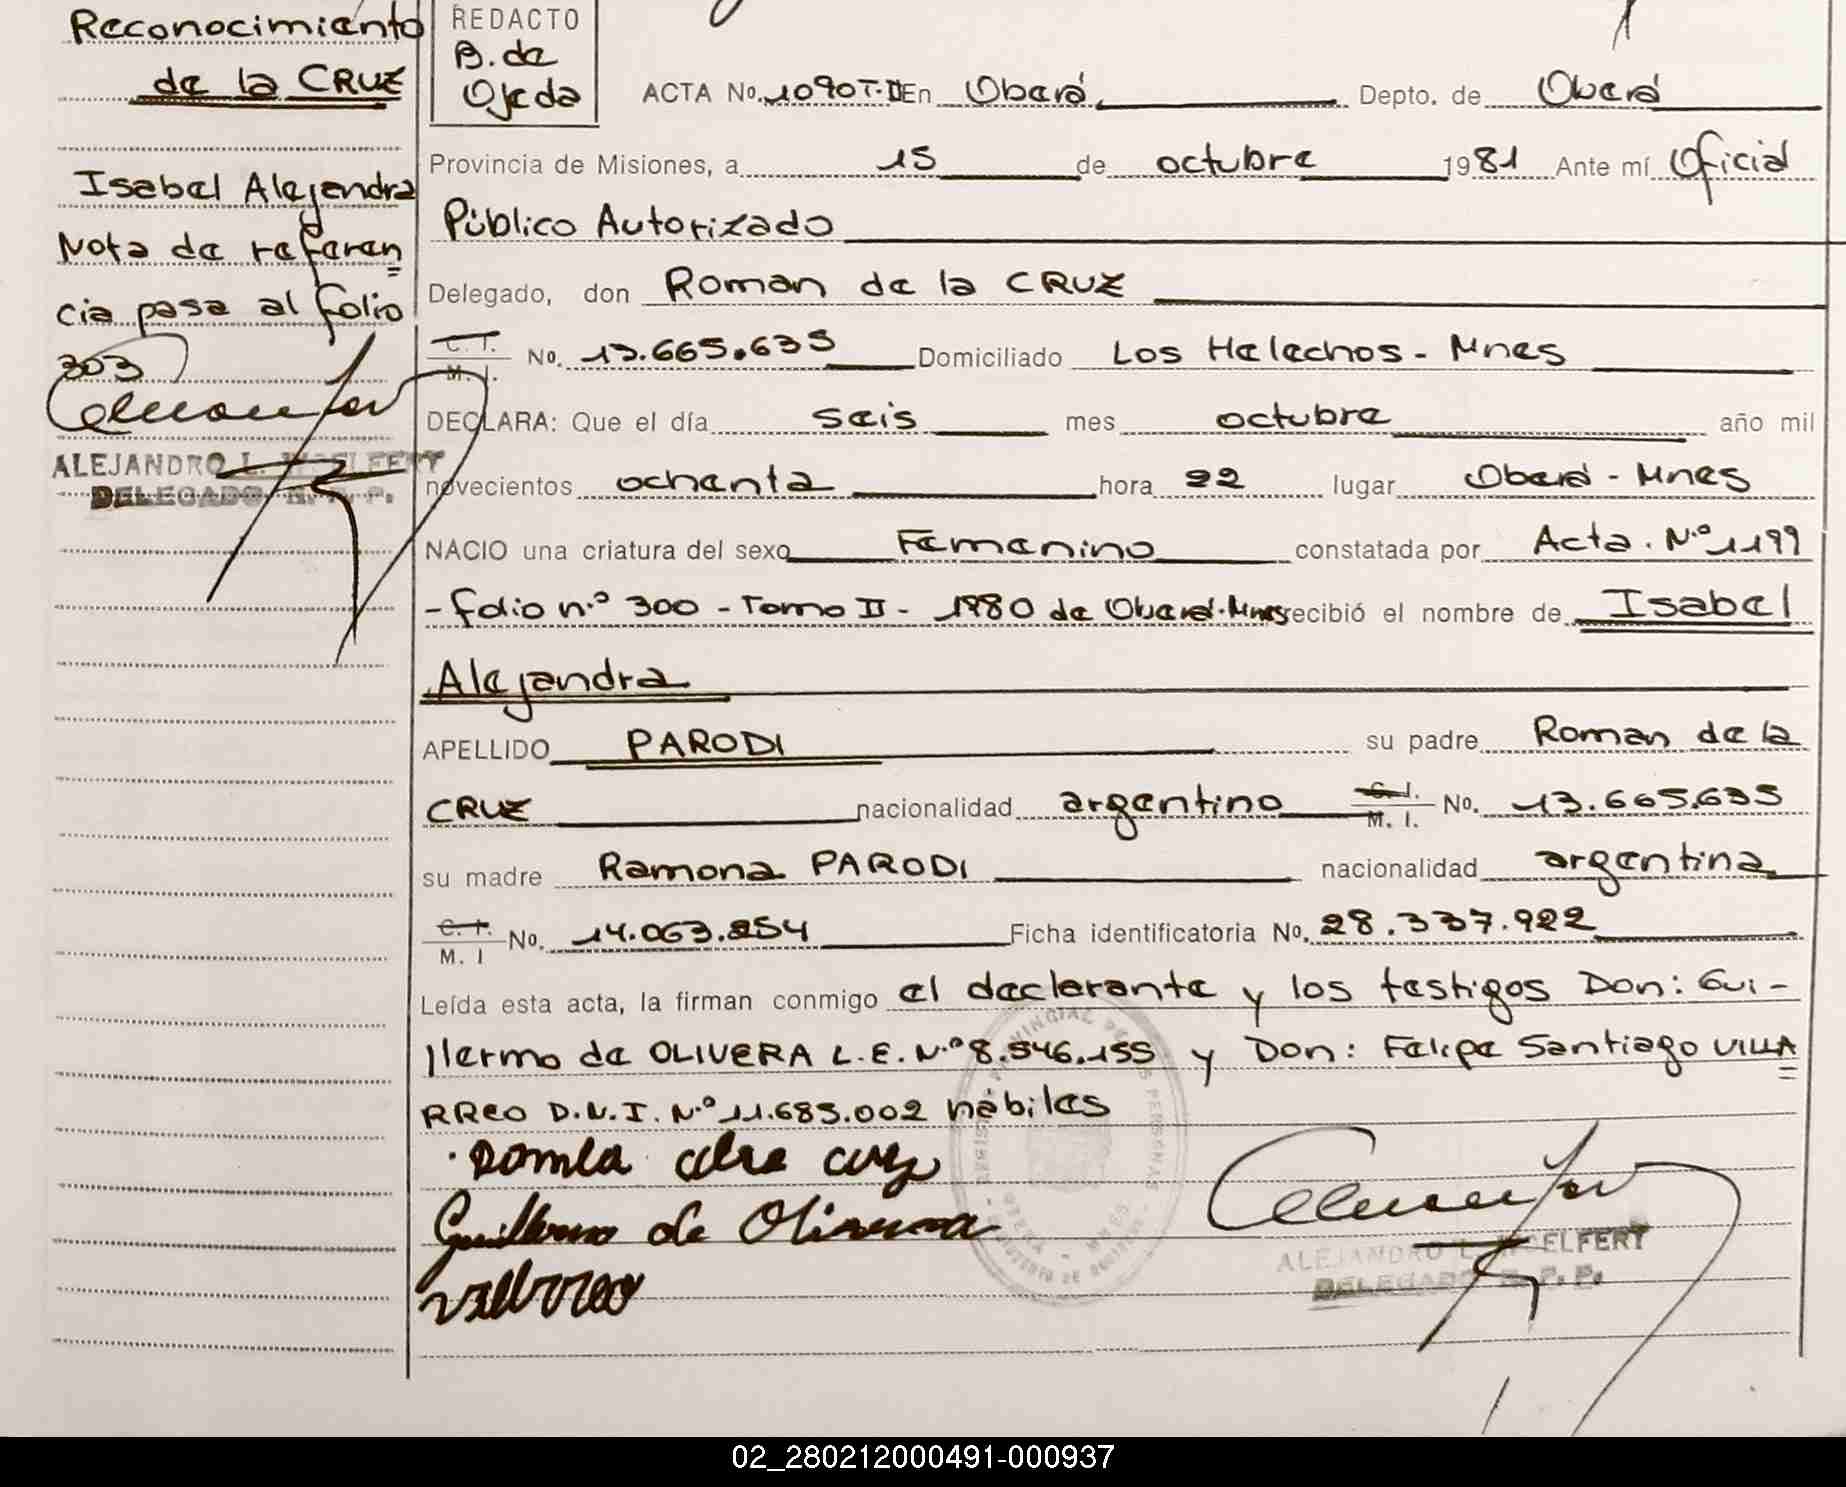 Reconocimiento
de la CRUZ
Isabel Alejandra
Nota de referen
cia pasa al folio
303
ALEJANDRO L. WOELFERT
DELEGADO R. P. P.
REDACTO
B. de
Ojeda
ACTA No. 1090 T. II En Oberá, Depto. de Oberá
Provincia de Misiones, a 15 de octubre 1981 Ante mí Oficial
Público Autorizado
Delegado, don Roman de la CRUZ
C. I. M. I. No. 13.665.635 Domiciliado Los Helechos - Mnes
DECLARA: Que el día seis mes octubre año mil
novecientos ochenta hora 22 lugar Oberá - Mnes
NACIO una criatura del sexo Femenino constatada por Acta. N.º 1199
- folio n.º 300 - Tomo II - 1980 de Oberá-Mnes recibió el nombre de Isabel
Alejandra
APELLIDO PARODI su padre Roman de la
CRUZ nacionalidad argentino C. I. M. I. No. 13.665.635
su madre Ramona PARODI nacionalidad argentina
C. I. M. I No. 14.063.254 Ficha identificatoria No. 28.337.922
Leída esta acta, la firman conmigo el declarante y los testigos Don: Gui-
llermo de OLIVERA L.E. N.º 8.546.155 y Don: Felipe Santiago VILLA
RREO D.N.I. N.º 11.685.002 hábiles
Guillermo de Olivera
ALEJANDRO L. WOELFERT
DELEGADO R. P. P.
02_280212000491-000937